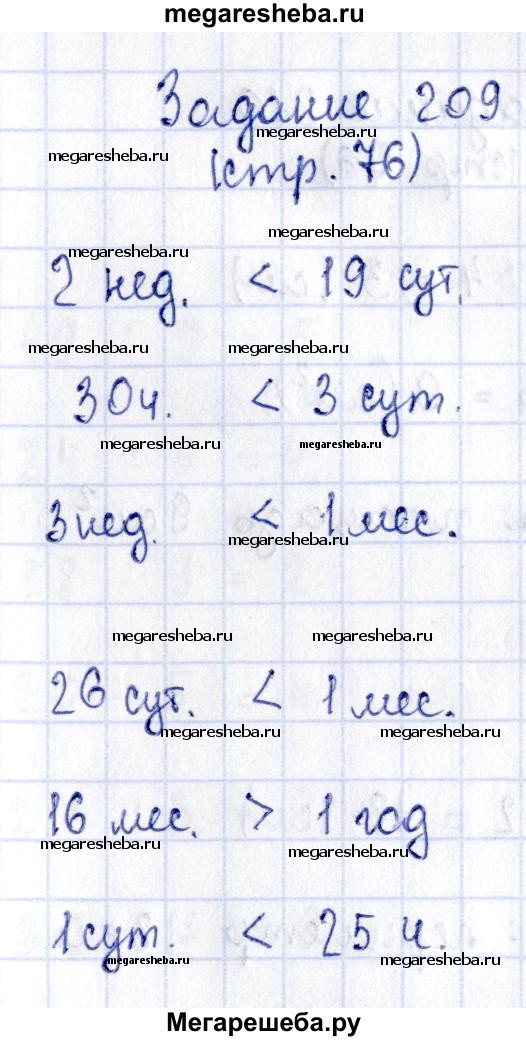 megaresheba.ru
Задание 209
megaresheba.ru
megaresheba.ru
(стр. 76)
megaresheba.ru
megaresheba.ru
2 нед. < 19 сут.
megaresheba.ru megaresheba.ru
30ч. < 3 сут.
megaresheba.ru megaresheba.ru
3 нед. < 1 мес.
megaresheba.ru
megaresheba.ru megaresheba.ru
26 сут. < 1 мес.
megaresheba.ru megaresheba.ru
16 мес. > 1 год
megaresheba.ru megaresheba.ru
1 сут. < 25 ч.
megaresheba.ru megaresheba.ru
Мегарешеба.ру